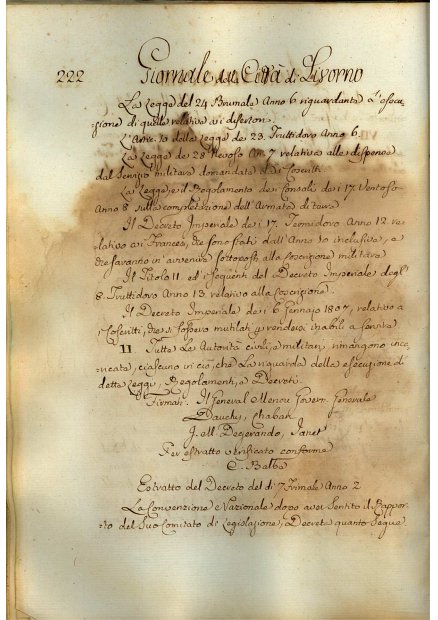 222 Giornale della Città di Livorno
La Legge del 24 Brumale Anno 6 riguardante l'esecu-
zione di quelle relative ai disertori.
L'Arre to della Legge dei 23. Fruttidoro Anno 6.
La Legge dei 28 Nevoso An. 7 relativa alle dispense
dal Servizio militare domandate dai Coscritti.
La Legge, e il Regolamento dei Consoli dei 17. Ventoso
Anno 8 sulla completazione dell'Armata di terra.
Il Decreto Imperiale dei 17. Termidoro Anno 12 re-
lativo ai Francesi, che sono stati dall'Anno 10 inclusive, e
che saranno in avvenire sottoposti alla coscrizione militare
Il Titolo 11 ed i seguenti del Decreto Imperiale degl'
8. Fruttidoro Anno 13 relativo alla Coscrizione.
Il Decreto Imperiale dei 6 Gennajo 1807, relativo a
i Coscritti, che si fossero mutilati, e rendevi inabili a servire
11 Tutte le Autorità civili, e militari rimangono inca-
ricate, ciascuno in ciò, che La riguarda della esecuzione di
dette Leggi, Regolamenti, e Decreti.
Firmati: Il General Menou Govern. Generale
Dauchy, Chaban
J. M. Degerando, Janet
Per estratto verificato conforme
C. Balbo
Estratto del Decreto del dì 7 Frimale Anno 2
La Convenzione Nazionale dopo aver Sentito il Rappor-
to del Suo Comitato di Legislazione, Decreta quanto Segue